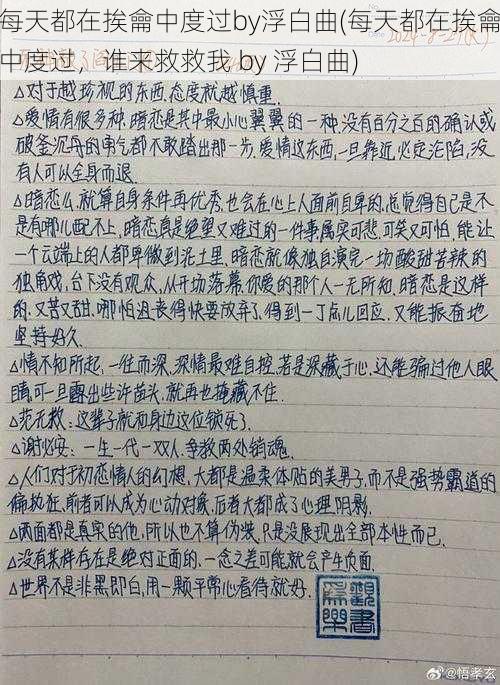 每天都在挨龠中度过by浮白曲(每天都在挨龠
中度过，谁来救救我 by 浮白曲)
△对于越珍视的东西,态度就越慎重.
△爱情有很多种,暗恋是其中最小心翼翼的一种,没有百分之百的确认或
破釜沉舟的勇气都不敢踏出那一步,爱情这东西,一旦靠近必定沦陷,没
有人可以全身而退.
△暗恋么,就算自身条件再优秀,也会在心上人面前自卑的,总觉得自己是不
是有哪儿配不上,暗恋真是绝望又难过的一件事,属实可悲,可笑又可怕,能让
一个云端上的人都卑微到泥土里,暗恋就像独自演完一场酸甜苦辣的
独角戏,台下没有观众,从开场落幕你爱的那个人一无所知.暗恋是这样
的,又苦又甜,哪怕沮丧得快要放弃了,得到一丁点儿回应,又能振奋地
坚持好久.
△情不知所起,一往而深,深情最难自控,若是深藏于心,还能骗过他人眼
睛,可一旦露出些许苗头,就再也掩藏不住.
△范无救:这辈子就和身边这位锁死了.
△谢必安:一生一代一双人,争教两处销魂.
△人们对于初恋情人的幻想,大都是温柔体贴的美男子,而不是强势霸道的
偏执狂,前者可以成为心动对象,后者大都成了心理阴影.
△两面都是真实的他,所以也不算伪装,只是没展现出全部本性而已.
△没有某样存在是绝对正面的,一念之差可能就会产生负面.
△世界不是非黑即白,用一颗平常心看待就好.
觀書為樂
@悟孝玄